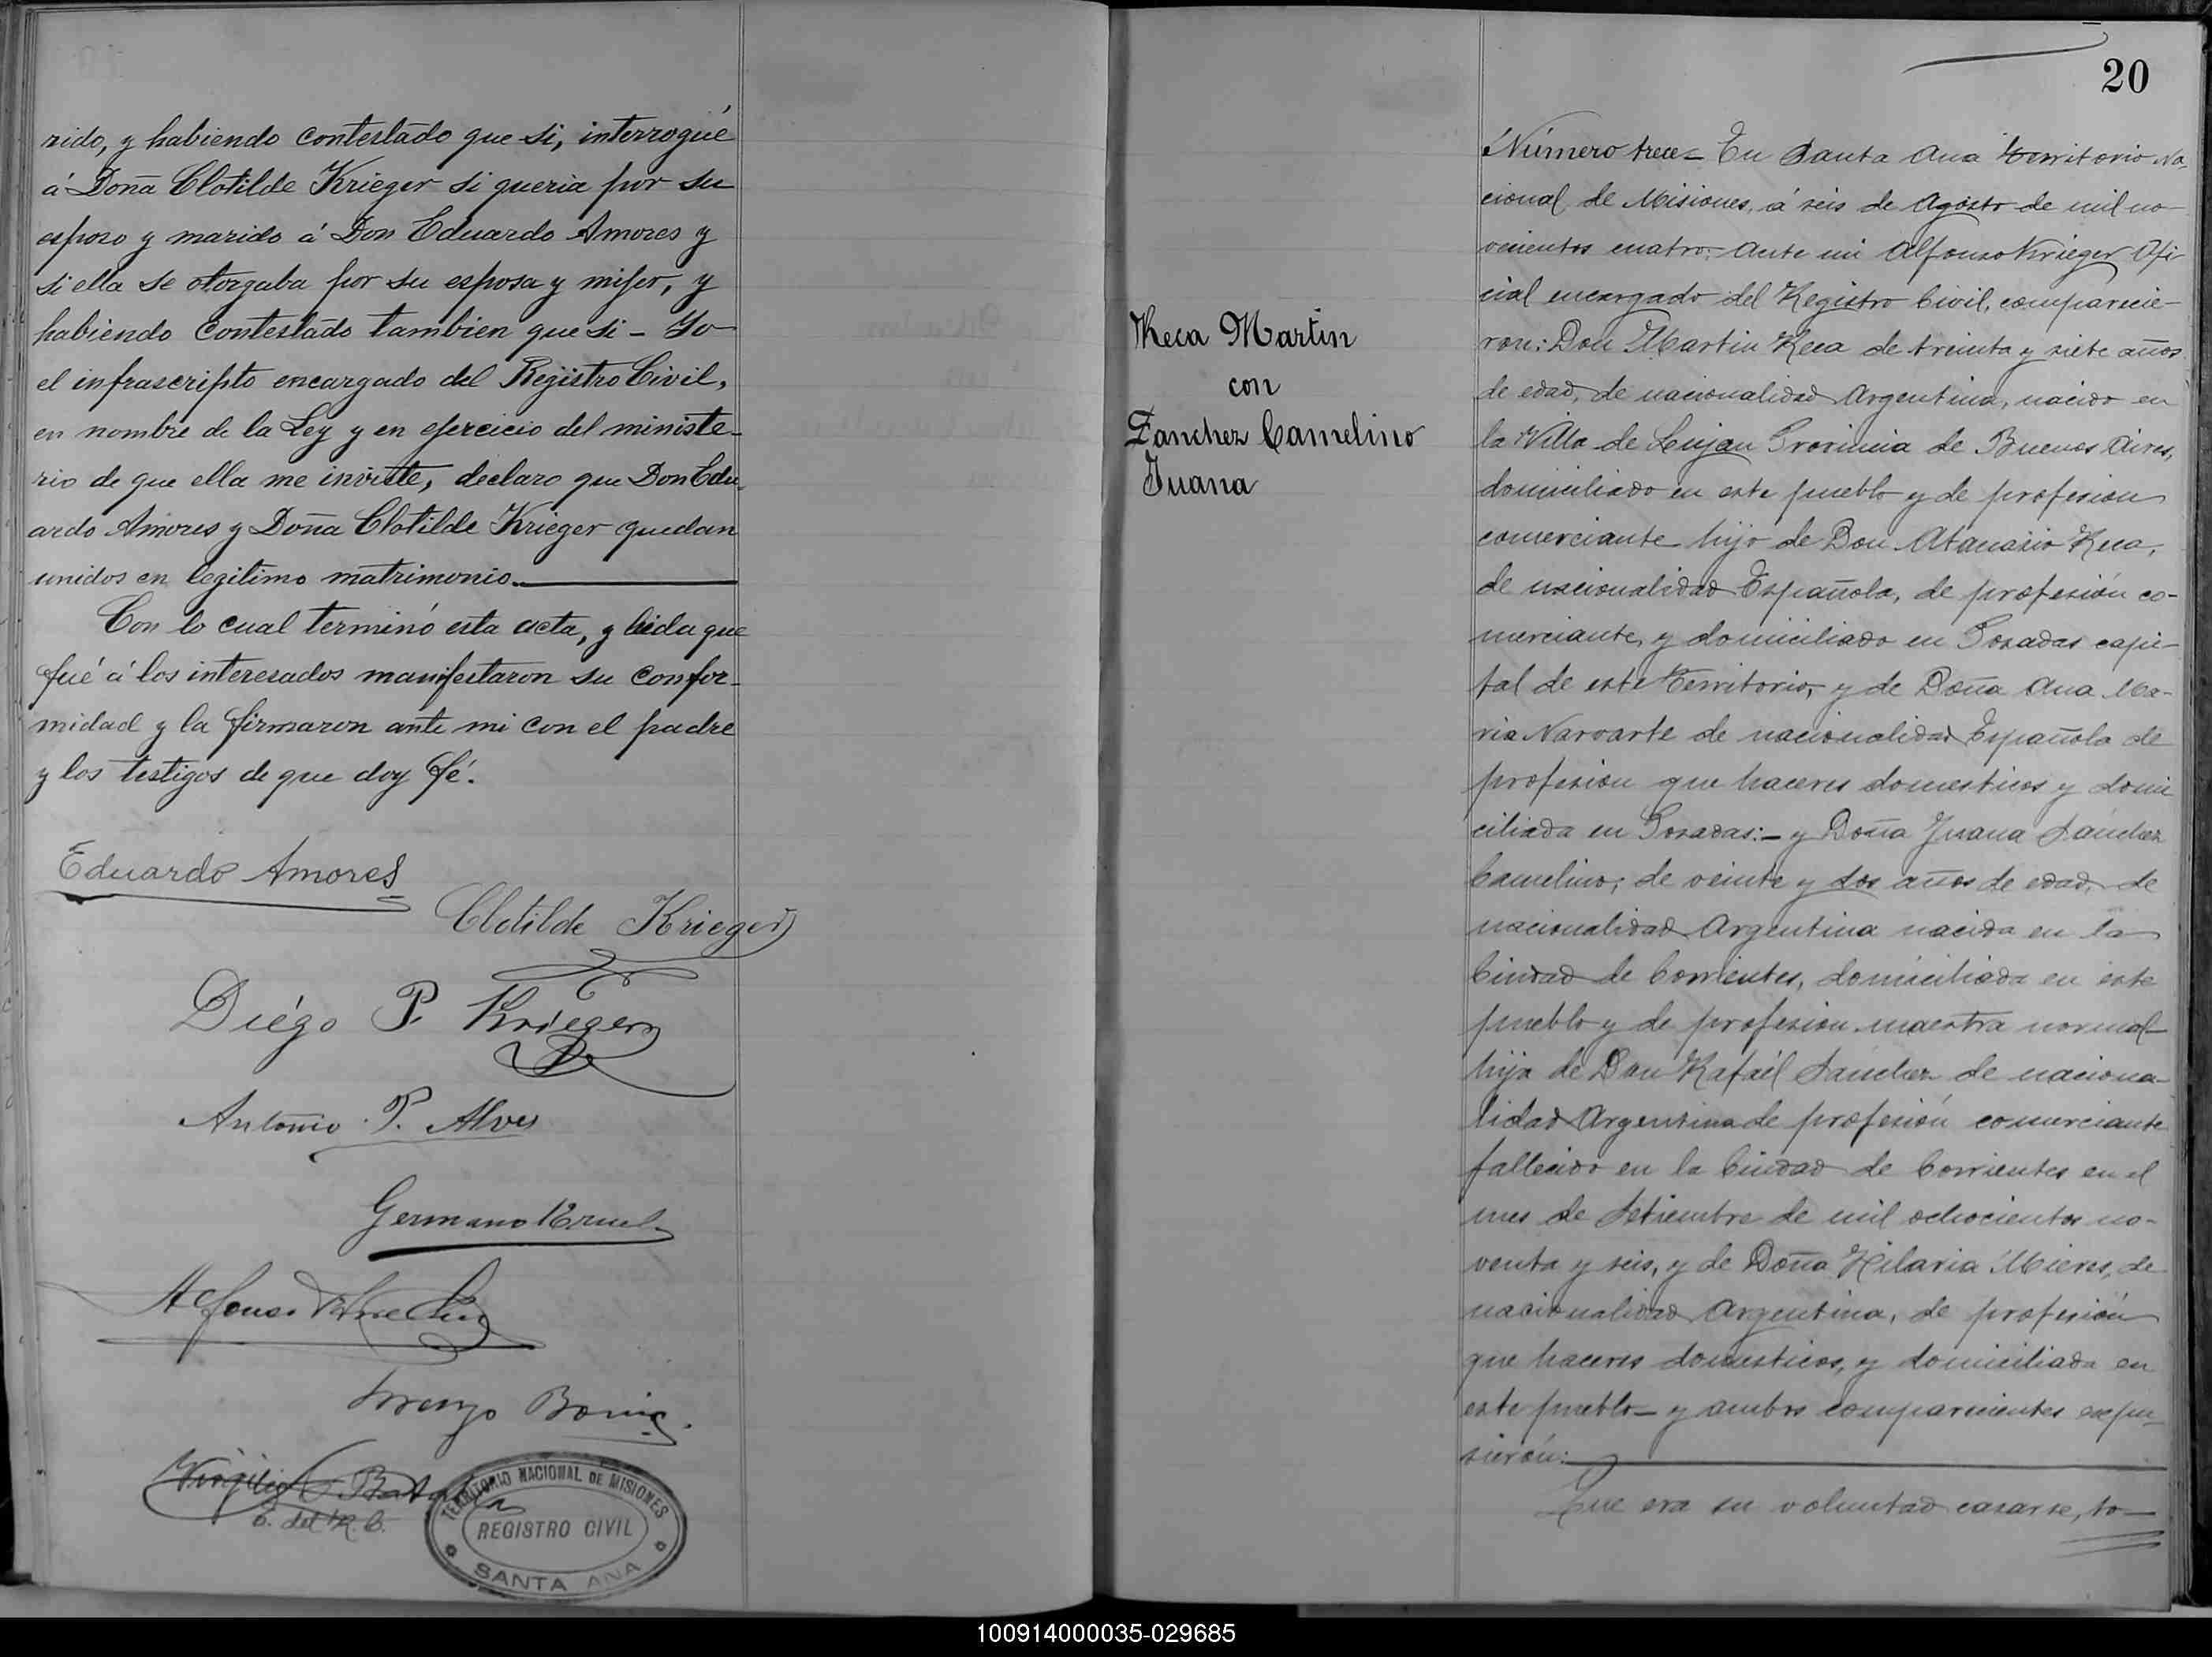 rido, y habiendo contestado que si, interrogué
á Doña Clotilde Krieger si queria por su
esposo y marido á Don Eduardo Amores y
si ella se otorgaba por su esposa y mujer, y
habiendo contestado tambien que si - Yo
el infrascripto encargado del Registro Civil,
en nombre de la Ley y en ejercicio del ministe-
rio de que ella me inviste, declaro que Don Edu-
ardo Amores y Doña Clotilde Krieger quedan
unidos en legitimo matrimonio.
Con lo cual terminó esta acta, y leida que
fué á los interesados manifestaron su confor-
midad y la firmaron ante mi con el padre
y los testigos de que doy fé.
Eduardo Amores
Clotilde Krieger
Diégo P. Krieger
Antonio P. Alves
Germano
Alfonso
Lorenzo
Virgilio
E. del R. C.
TERRITORIO NACIONAL DE MISIONES
REGISTRO CIVIL
SANTA ANA
20
Reca Martin
con
Sanchez Camelino
Juana
Número trece - En Santa Ana territorio Na-
cional de Misiones, á seis de Agosto de mil no-
vecientos cuatro: ante mi Alfonso Krieger Ofi-
cial encargado del Registro Civil, comparecie-
ron: Don Martin Reca de treinta y siete años
de edad, de nacionalidad Argentina, nacido en
la Villa de Lujan Provincia de Buenos Aires,
domiciliado en este pueblo y de profesion
comerciante hijo de Don Atanasio Reca,
de nacionalidad Española, de profesión co-
merciante, y domiciliado en Posadas capi-
tal de este territorio, y de Doña Ana Ma-
ria Navarte de nacionalidad Española de
profesion que haceres domesticos y domi
ciliada en Posadas:- y Doña Juana Sánchez
Camelino; de veinte y dos años de edad, de
nacionalidad Argentina nacida en la
Ciudad de Corrientes, domiciliada en este
pueblo y de profesion maestra normal
hija de Don Rafaél Sanchez de naciona-
lidad Argentina de profesión comerciante
fallecido en la Ciudad de Corrientes en el
mes de Setiembre de mil ochocientos no-
venta y seis, y de Doña Hilaria Mieres, de
nacionalidad Argentina, de profesión
que haceres domesticos, y domiciliada en
este pueblo - y ambos comparecientes expu-
sierón:
Que era su voluntad casarse, to-
100914000035-029685